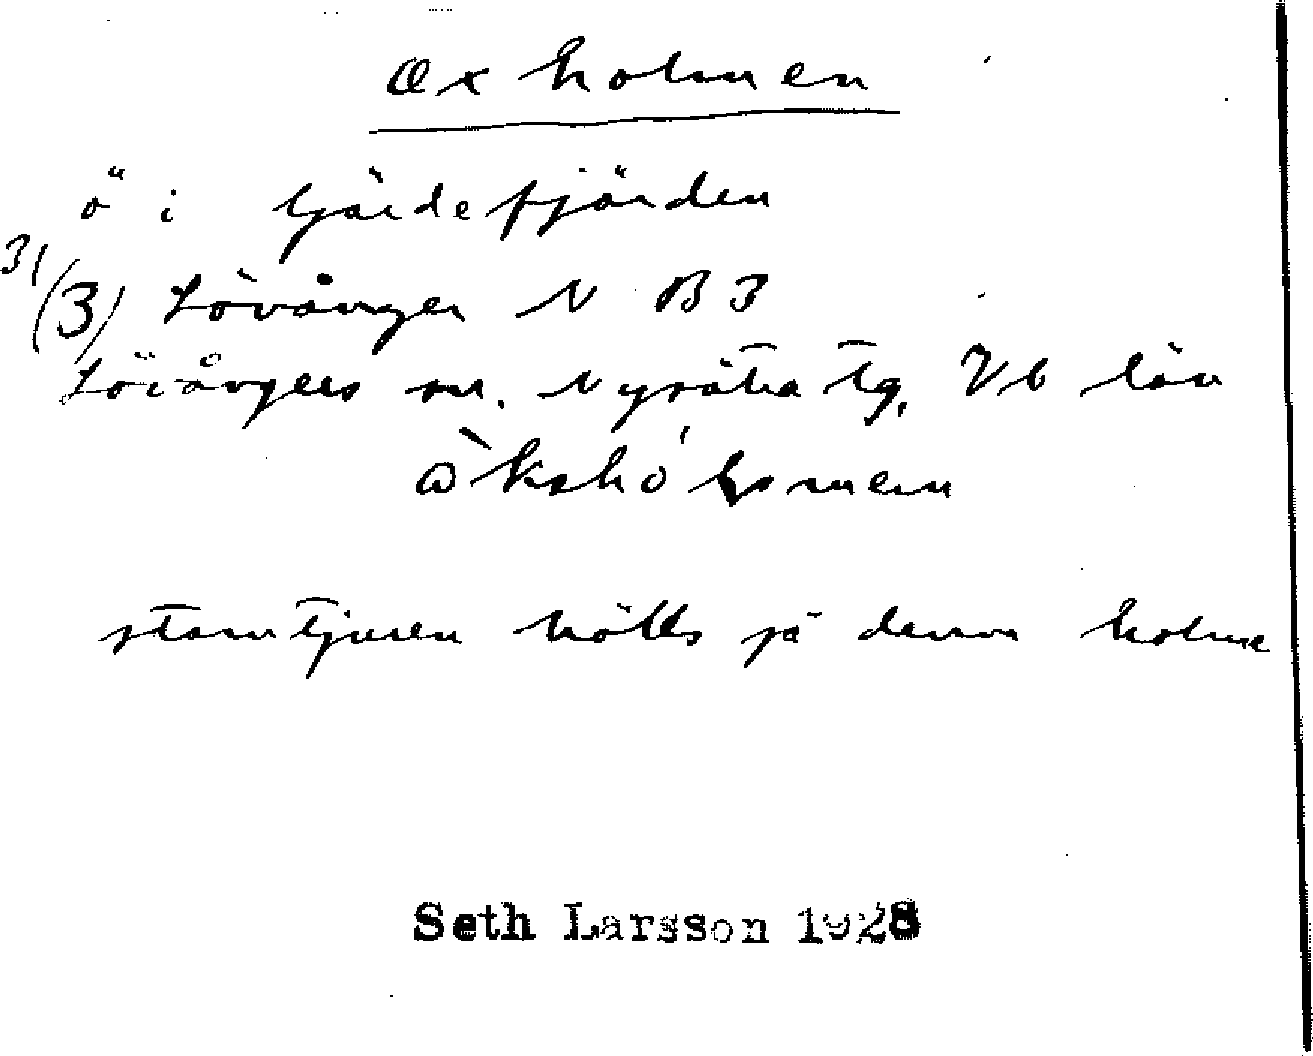 Oxholmen
ö i Gärdefjärden
31/(3) Lövånger N B3
Lövångers sn. Nysätra tg, Vb län
stamtjuren hölls på denna holme
Seth Larsson 1928